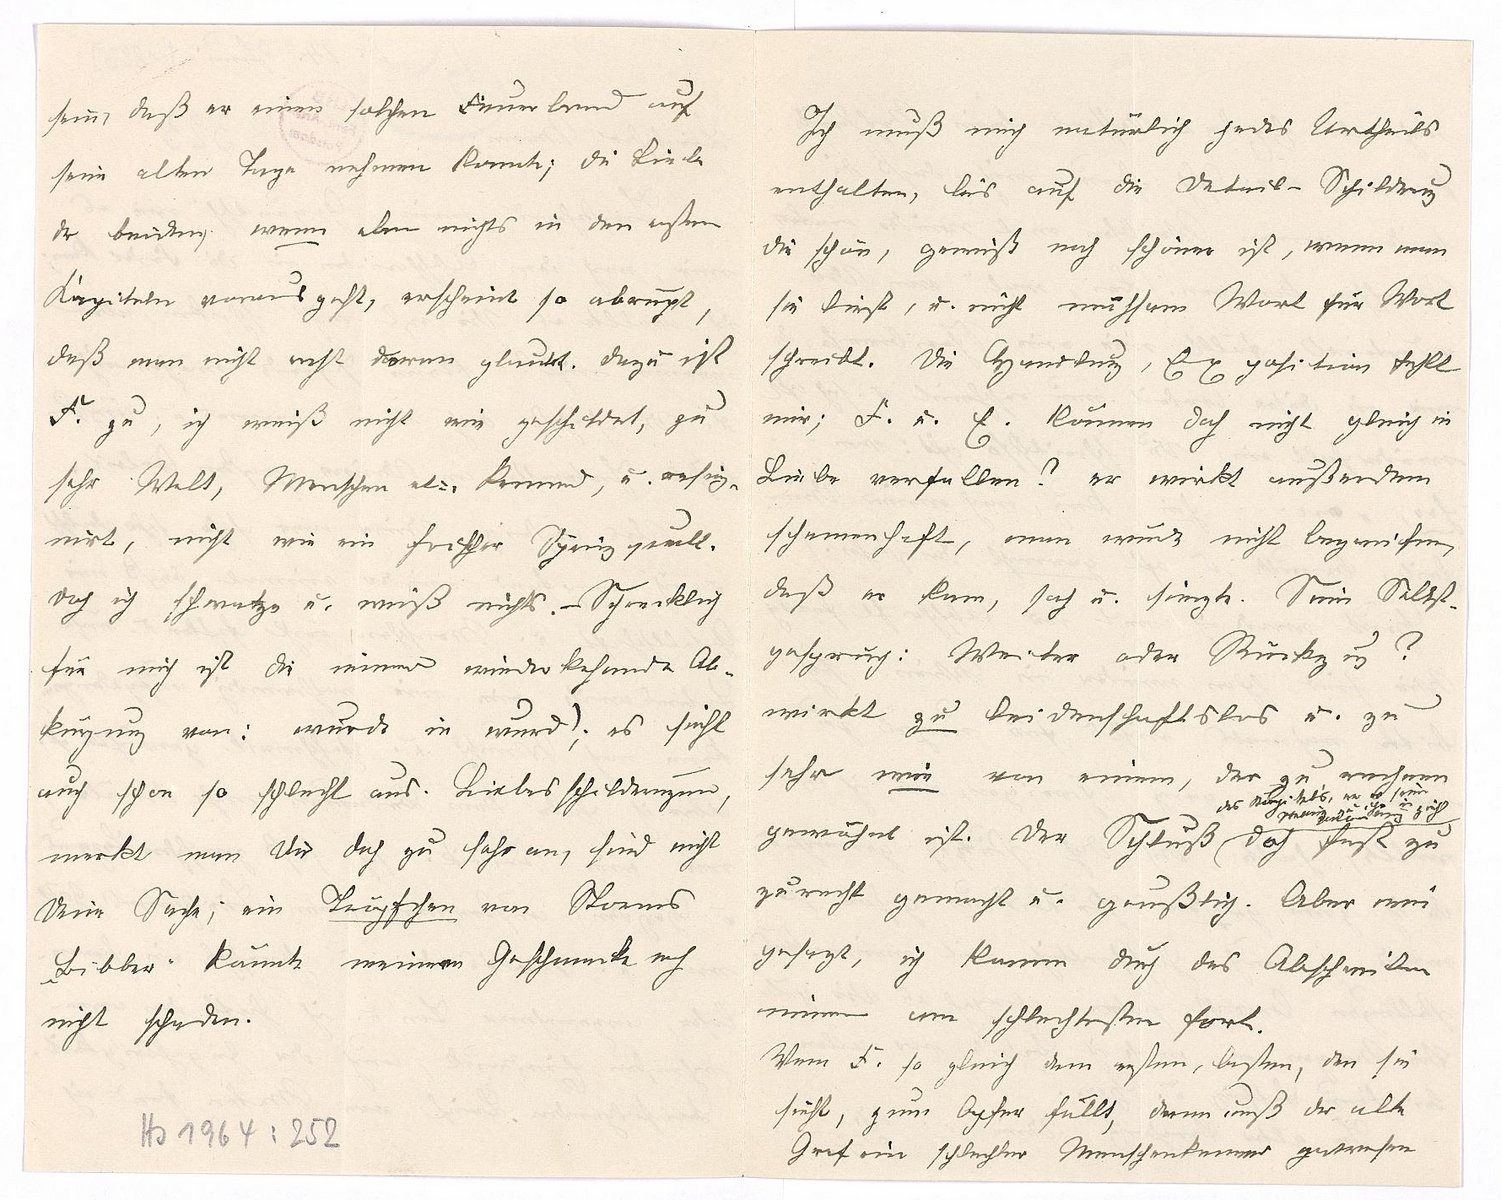 sein, daß er einen solchen Feuerbrand auf
seine alten Tage nehmen konnte; die Liebe
der beiden, wenn eben nichts in den ersten
Kapiteln vorausgeht, erscheint so abrupt,
daß man nicht recht daran glaubt. Dazu ist
F. zu, ich weiß nicht wie geschildert, zu
sehr Welt, Menschen etc. kennend, u. resig-
nirt, nicht wie ein frischer Springquell.
doch ich schwatze u. weiß nichts. – Schrecklich
für mich ist die immer wiederkehrende Ab-
kürzung von: wurde in wurd); es sieht
auch schon so schlecht aus. Liebesschilderungen,
merkt man Dir doch zu sehr an, sind nicht
Deine Sache; ein Tröpfchen von Storms
Bibber könnte meinem Geschmacke nach
nicht schaden.
Hs 1964 : 252
Ich muß mich natürlich jedes Urtheils
enthalten, bis auf die Detail-Schilderung
die schön, gewiß noch schöner ist, wenn man
sie liest, u. nicht mühsam Wort für Wort
schreibt. Die Handlung, Exposition fehlt
mir; F. u. E. können doch nicht gleich in
Liebe verfallen? er wirkt außerdem
schemenhaft, man würde nicht begreifen,
daß er kam, sah u. siegte. Sein Selbst-
gespräch: Weiter oder Rückzug?
wirkt zu leidenschaftslos u. zu
sehr wie von einem, der zu rechnen
gewöhnt ist. Der Schluß
des Kapitels, wo er seine
doch fast zu
zurecht gemacht u. gruslig. Aber wie
gesagt, ich komme durch das Abschreiben
immer am schlechtesten fort.
Wenn F. so gleich dem ersten, besten, den sie
sieht, zum Opfer fällt, dann muß der alte
Graf ein schlechter Menschenkenner gewesen